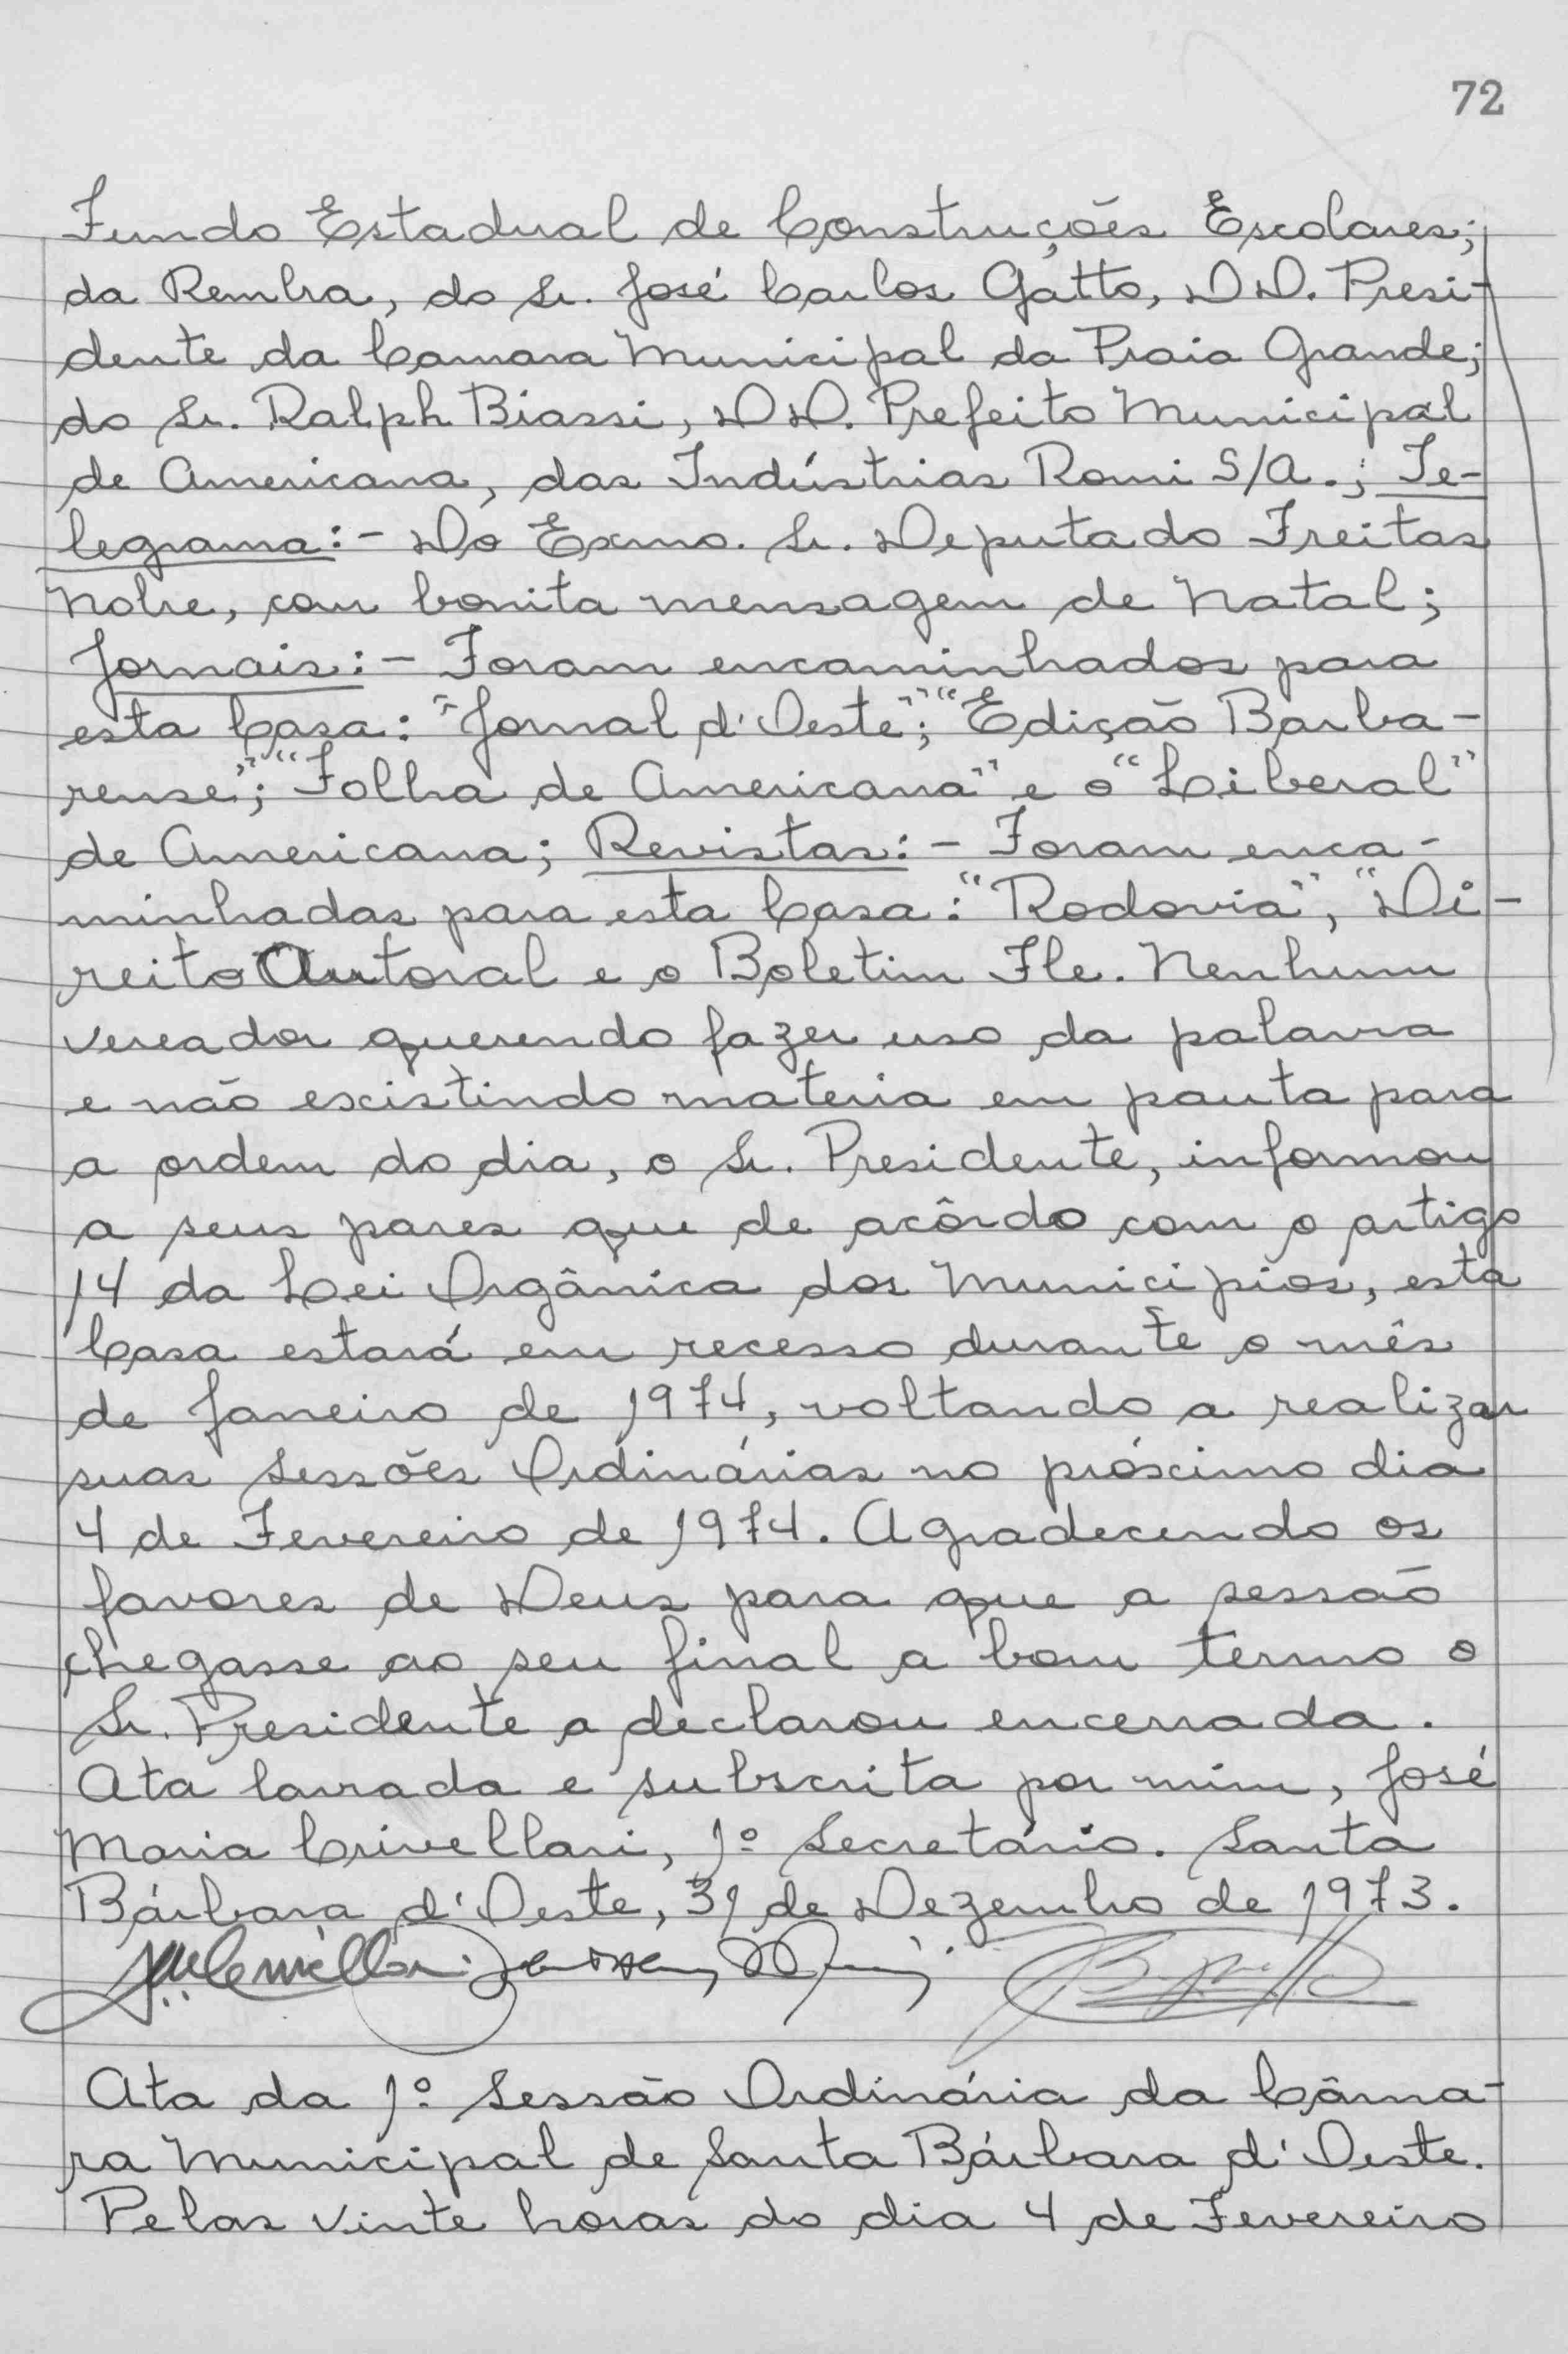 72
Fundo Estadual de Construções Escolares;
da Rembra, do Sr. José Carlos Gatto, DD. Presi-
dente da Camara Municipal da Praia Grande;
do Sr. Ralph Biassi, DD. Prefeito Municipal
de Americana, das Indústrias Romi S/A.; Te-
legrama:- Do Exmo. Sr. Deputado Freitas
Nobre, com bonita mensagem de Natal;
Jornais:- Foram encaminhados para
esta Casa: "Jornal d'Oeste"; "Edição Barba-
rense"; "Folha de Americana" e o "Liberal"
de Americana; Revistas:- Foram enca-
minhadas para esta Casa: "Rodovia", "Di-
reito Autoral e o Boletim Fle. Nenhum
vereador querendo fazer uso da palavra
e não existindo materia em pauta para
a ordem do dia, o Sr. Presidente, informou
a seus pares que de acôrdo com o artigo
14 da Lei Orgânica dos Municipios, esta
Casa estará em recesso durante o mês
de Janeiro de 1974, voltando a realizar
suas Sessões Ordinárias no próximo dia
4 de Fevereiro de 1974. Agradecendo os
favores de Deus para que a sessão
chegasse ao seu final a bom termo o
Sr. Presidente a declarou encerrada.
Ata lavrada e subscrita por mim, José
Maria Crivellari, 1º Secretário. Santa
Bárbara d'Oeste, 31 de Dezembro de 1973.
Ata da 1º Sessão Ordinária da Câma-
ra Municipal de Santa Bárbara d'Oeste.
Pelas vinte horas do dia 4 de Fevereiro